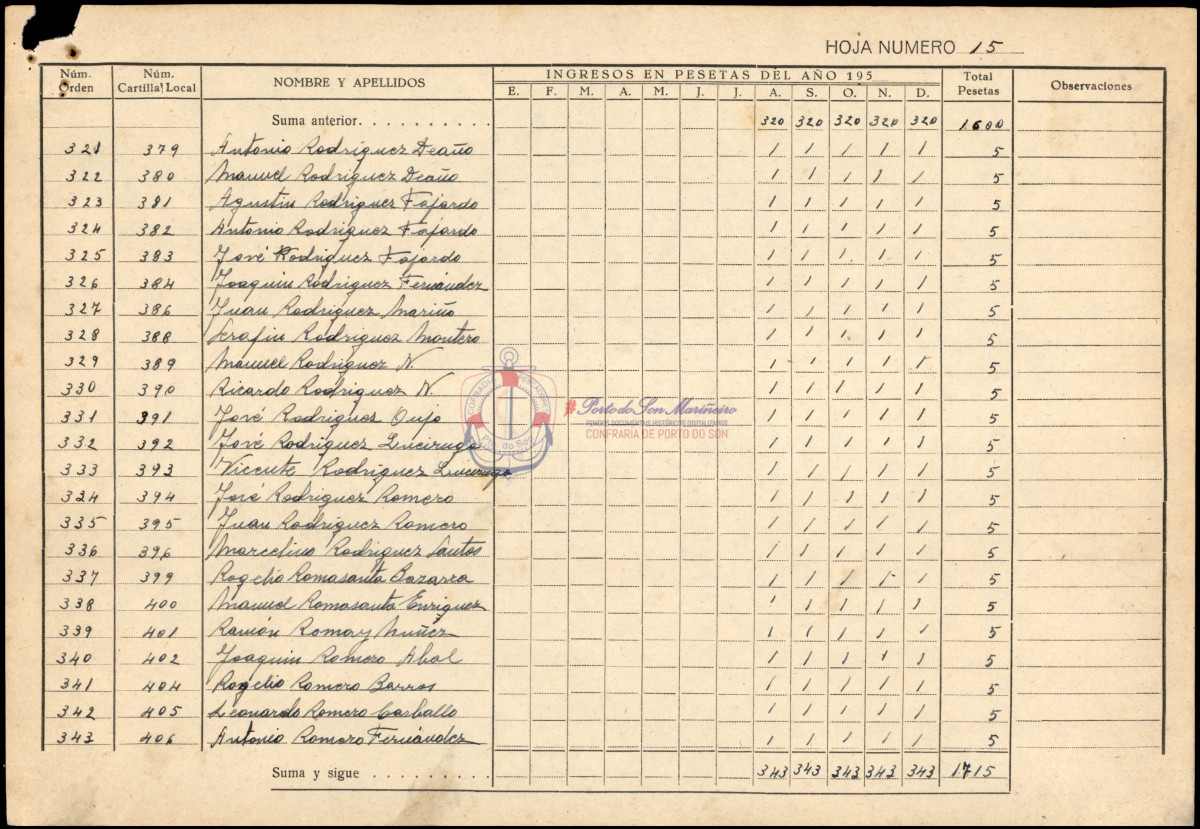 HOJA NUMERO 15
Núm. Orden Núm. Cartilla Local NOMBRE Y APELLIDOS INGRESOS EN PESETAS DEL AÑO 195 Total Pesetas Observaciones
E. F. M. A. M. J. J. A. S. O. N. D.
Suma anterior. . . . . . . . . . 320 320 320 320 320 1.600
321 379 Antonio Rodriguez Deaño 1 1 1 1 1 5
322 380 Manuel Rodriguez Deaño 1 1 1 1 1 5
323 381 Agustin Rodriguez Fajardo 1 1 1 1 1 5
324 382 Antonio Rodriguez Fajardo 1 1 1 1 1 5
325 383 José Rodriguez Fajardo 1 1 1 1 1 5
326 384 Joaquin Rodriguez Fernández 1 1 1 1 1 5
327 386 Juan Rodriguez Mariño 1 1 1 1 1 5
328 388 Serafin Rodriguez Montero 1 1 1 1 1 5
329 389 Manuel Rodriguez N. 1 1 1 1 1 5
330 390 Ricardo Rodriguez N. 1 1 1 1 1 5
331 391 José Rodriguez Oujo 1 1 1 1 1 5
332 392 José Rodriguez 1 1 1 1 1 5
333 393 Vicente Rodriguez 1 1 1 1 1 5
324 394 José Rodriguez Romero 1 1 1 1 1 5
335 395 Juan Rodriguez Romero 1 1 1 1 1 5
336 396 Marcelino Rodriguez Santos 1 1 1 1 1 5
337 399 Rogelio Romasanta Bazarra 1 1 1 1 1 5
338 400 Manuel Romasanta Enriquez 1 1 1 1 1 5
339 401 Ramón Romay Muñiz 1 1 1 1 1 5
340 402 Joaquin Romero Abal 1 1 1 1 1 5
341 404 Rogelio Romero Barros 1 1 1 1 1 5
342 405 Leonardo Romero Carballo 1 1 1 1 1 5
343 406 Antonio Romero Fernández 1 1 1 1 1 5
Suma y sigue . . . . . . . . . 343 343 343 343 343 1715
#Porto do Son Mariñeiro
FONDOS DOCUMENTAIS HISTÓRICOS DIXITALIZADOS
CONFRARÍA DE PORTO DO SON
Porto do Son